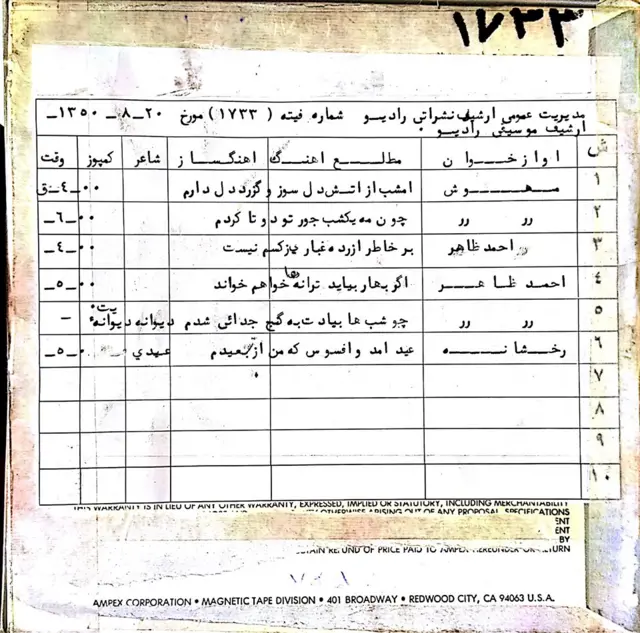 ۱۷۳۳
مدیریت عمومی ارشیف نشراتی رادیو شماره فیته ( ۱۷۳۳ ) مورخ ۲۰ـ ۸ ـ ۱۳۵۰ـ
ارشیف موسیقی رادیو ۰
ش اوازخوان مطلع اهنگ اهنگساز شاعر کمپوز وقت
۱ مهوش امشب از اتش دل سوز و گزرد دل دارم ۰۰ـ۴ـق
۲ رر رر چون مه یکشب جور تو دوتا کردم ۰۰ـ۶ـ
۳ رر احمد ظاهر بر خاطر ازرده غبار یزکسم نیست ۰۰ـ۴ـ
۴ احمد ظاهر اگر بهار بیاید ترانه ها خواهم خواند ۰۰ـ۵ـ
۵ رر رر چو شب ها بیادت به گنج جدائی شدم دیوانه دیوانه ـ
۶ رخشانه عید امد و افسوس که من از بعیدم عیدی ۰ـ۵ـ
۷
۸
۹
۱۰
THIS WARRANTY IS IN LIEU OF ANY OTHER WARRANTY, EXPRESSED, IMPLIED OR STATUTORY, INCLUDING MERCHANTABILITY
OTHERWISE ARISING OUT OF ANY PROPOSAL, SPECIFICATIONS
ENT
ENT
BY
REFUND OF PRICE PAID TO AMPEX HEREUNDER OR RETURN
۷۸۸
AMPEX CORPORATION • MAGNETIC TAPE DIVISION • 401 BROADWAY • REDWOOD CITY, CA 94063 U.S.A.